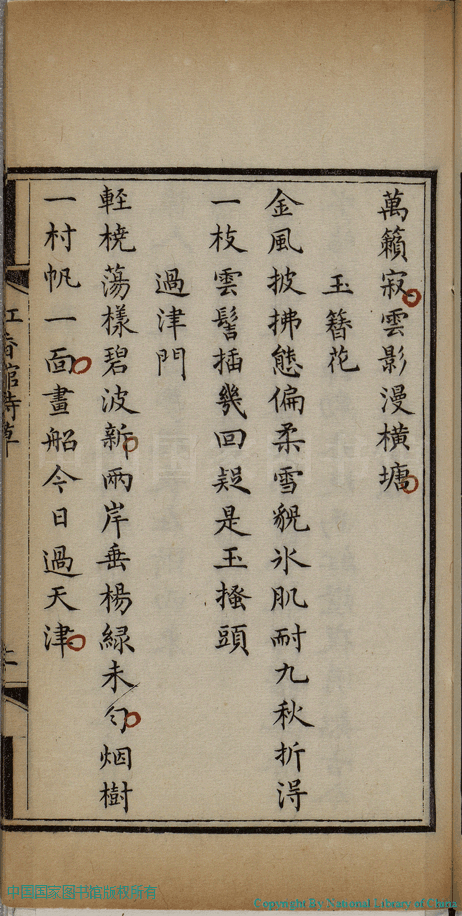 萬籟寂雲影漫橫塘
玉簪花
金風披拂態偏柔雪貌冰肌耐九秋折淂
一枝雲髻插幾回疑是玉搔頭
過津門
輕橈蕩樣碧波新兩岸垂楊綠未勻烟樹
一村帆一面畫船今日過天津
紅香館詩草
中国国家图书馆版权所有
Copyright By National Library of China